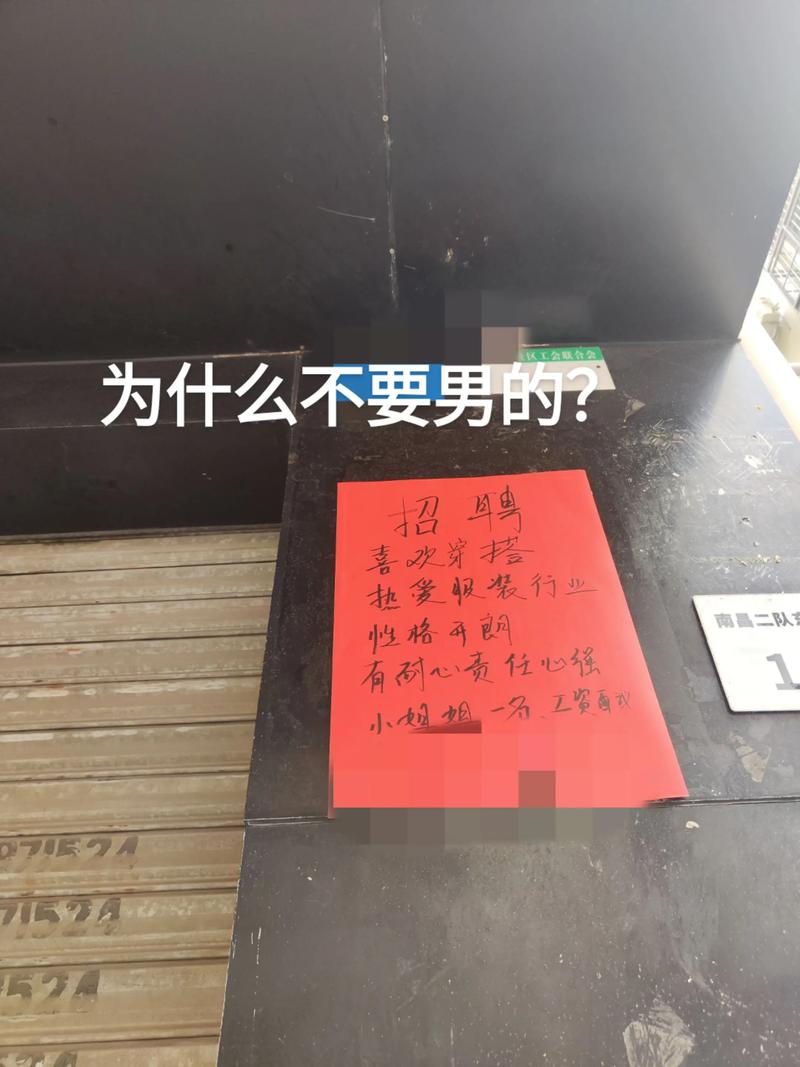 区工会联合会
为什么不要男的?
招聘
喜欢穿搭
热爱服装行业
性格开朗
有耐心责任心强
小姐姐一名、工资面议
南昌二队
1
871524
71524
524